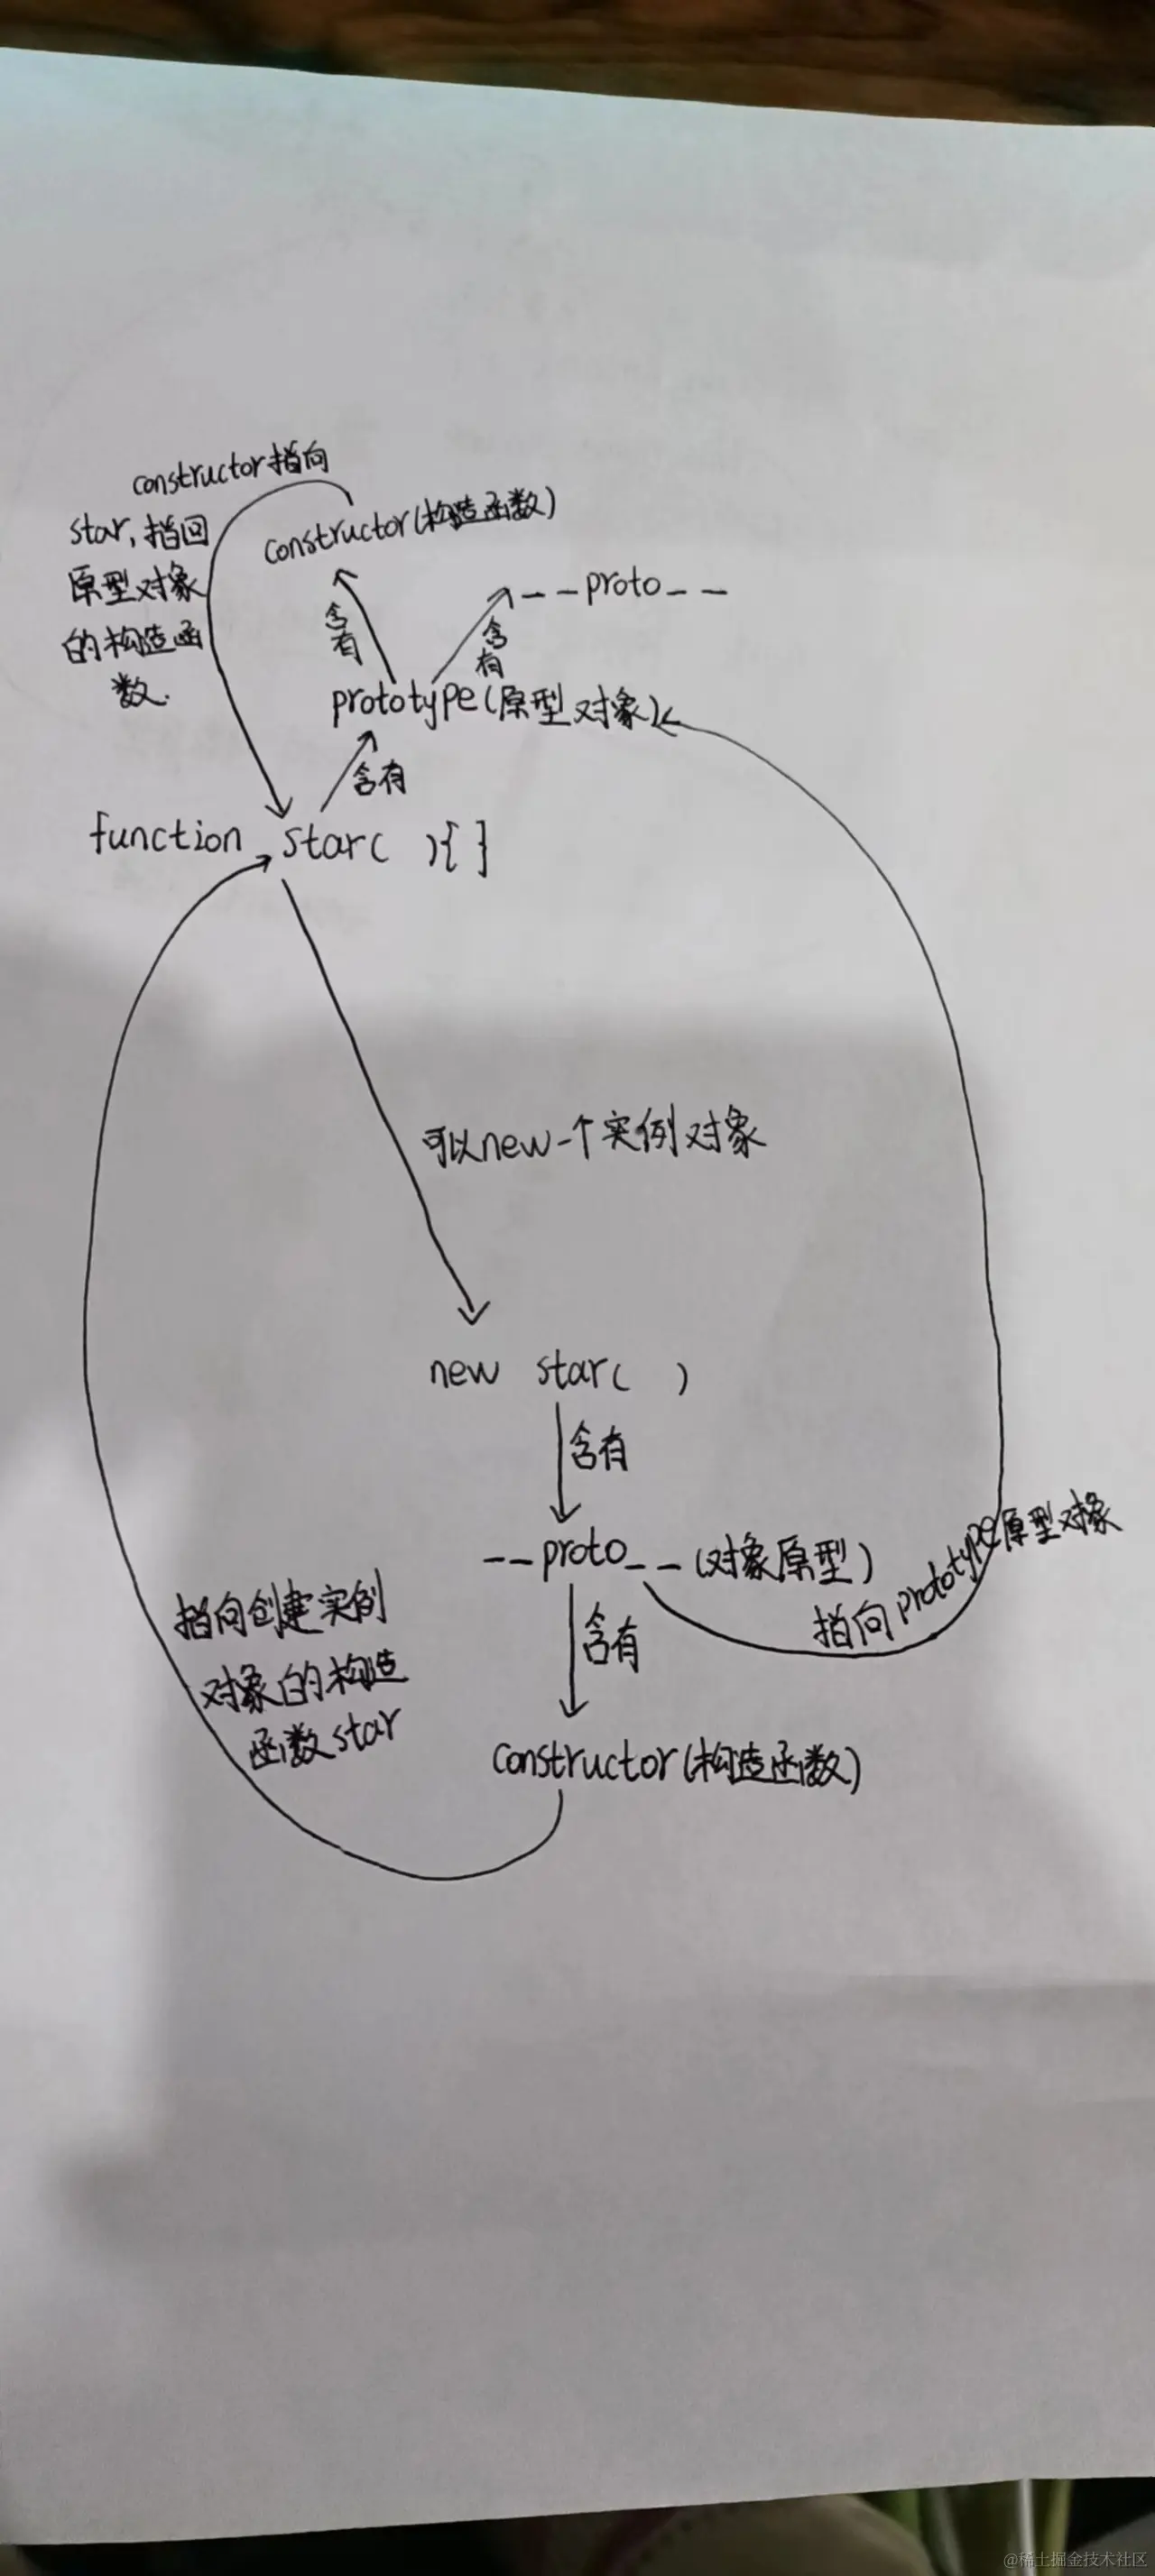 constructor指向
star,指回
原型对象
的构造函
数.
constructor(构造函数)
含有
--proto--
含有
prototype(原型对象)
含有
function star( ){ }
可以new一个实例对象
new star( )
含有
--proto--(对象原型)
指向prototype原型对象
含有
指向创建实例
对象的构造
函数star
constructor(构造函数)
@稀土掘金技术社区